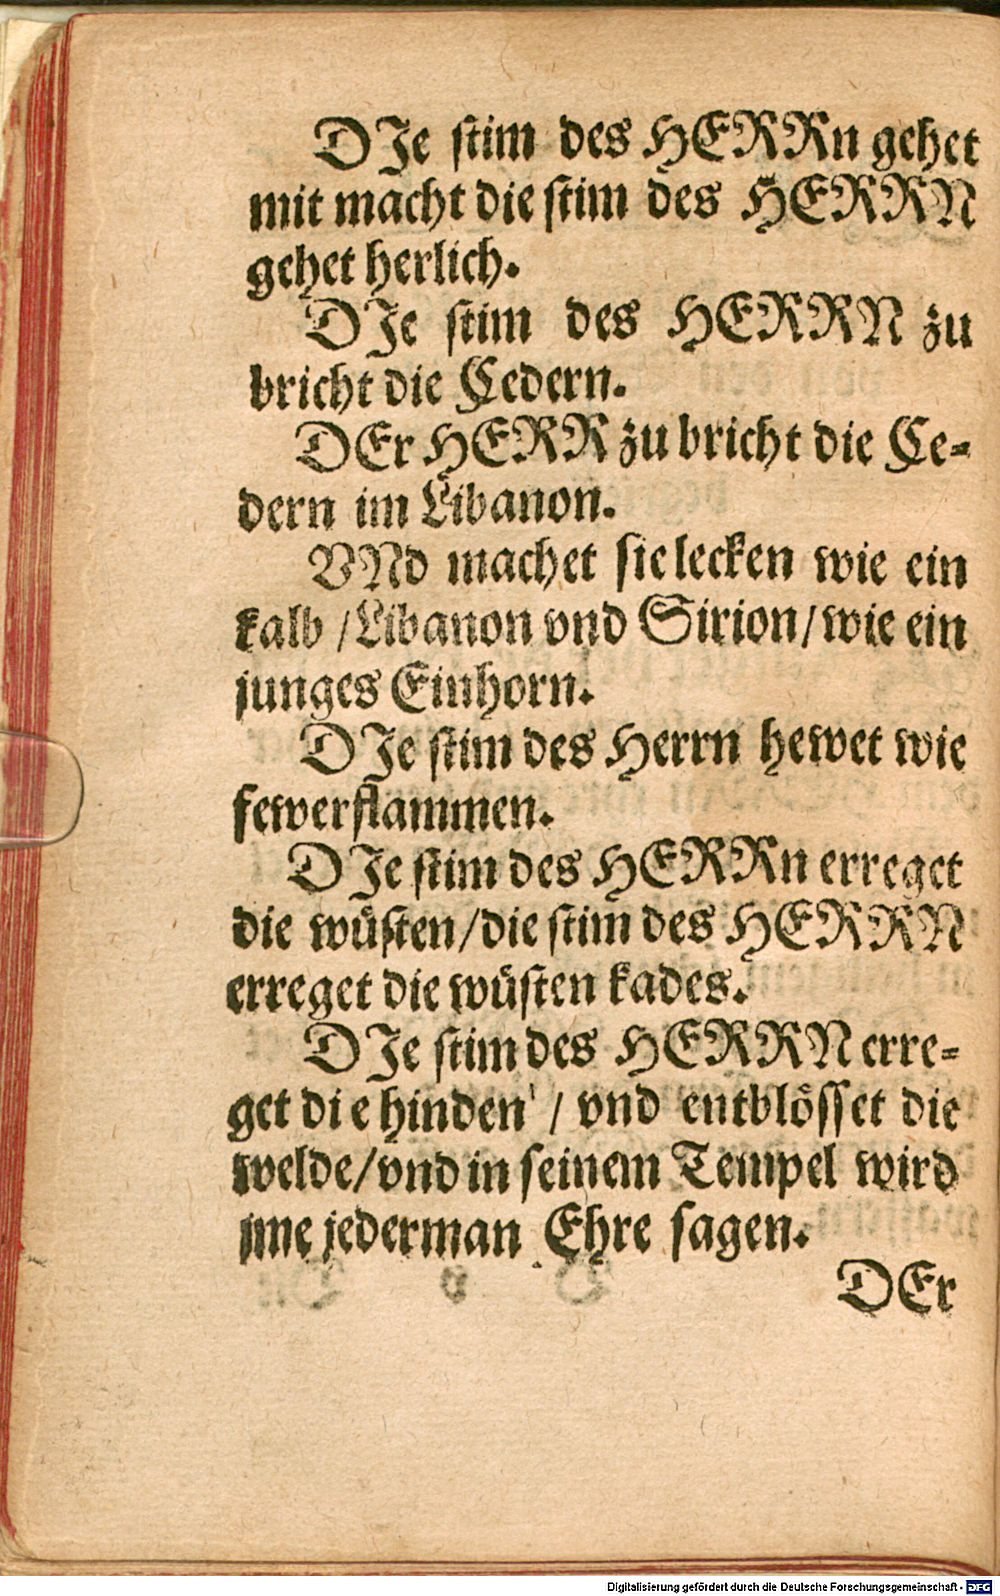 DJe stim des HERRn gehet
mit macht die stim des HERRN
gehet herlich.
DJe stim des HERRN zu
bricht die Cedern.
DEr HERR zu bricht die Ce-
dern im Libanon.
VNd machet sie lecken wie ein
kalb / Libanon vnd Sirion / wie ein
junges Einhorn.
DJe stim des Herrn hewet wie
fewerflammen.
DJe stim des HERRn erreget
die wüsten / die stim des HERRN
erreget die wüsten kades.
DJe stim des HERRN erre-
get die hinden / vnd entblösset die
welde / vnd in seinem Tempel wird
jme jederman Ehre sagen.
DEr
Digitalisierung gefördert durch die Deutsche Forschungsgemeinschaft - DFG